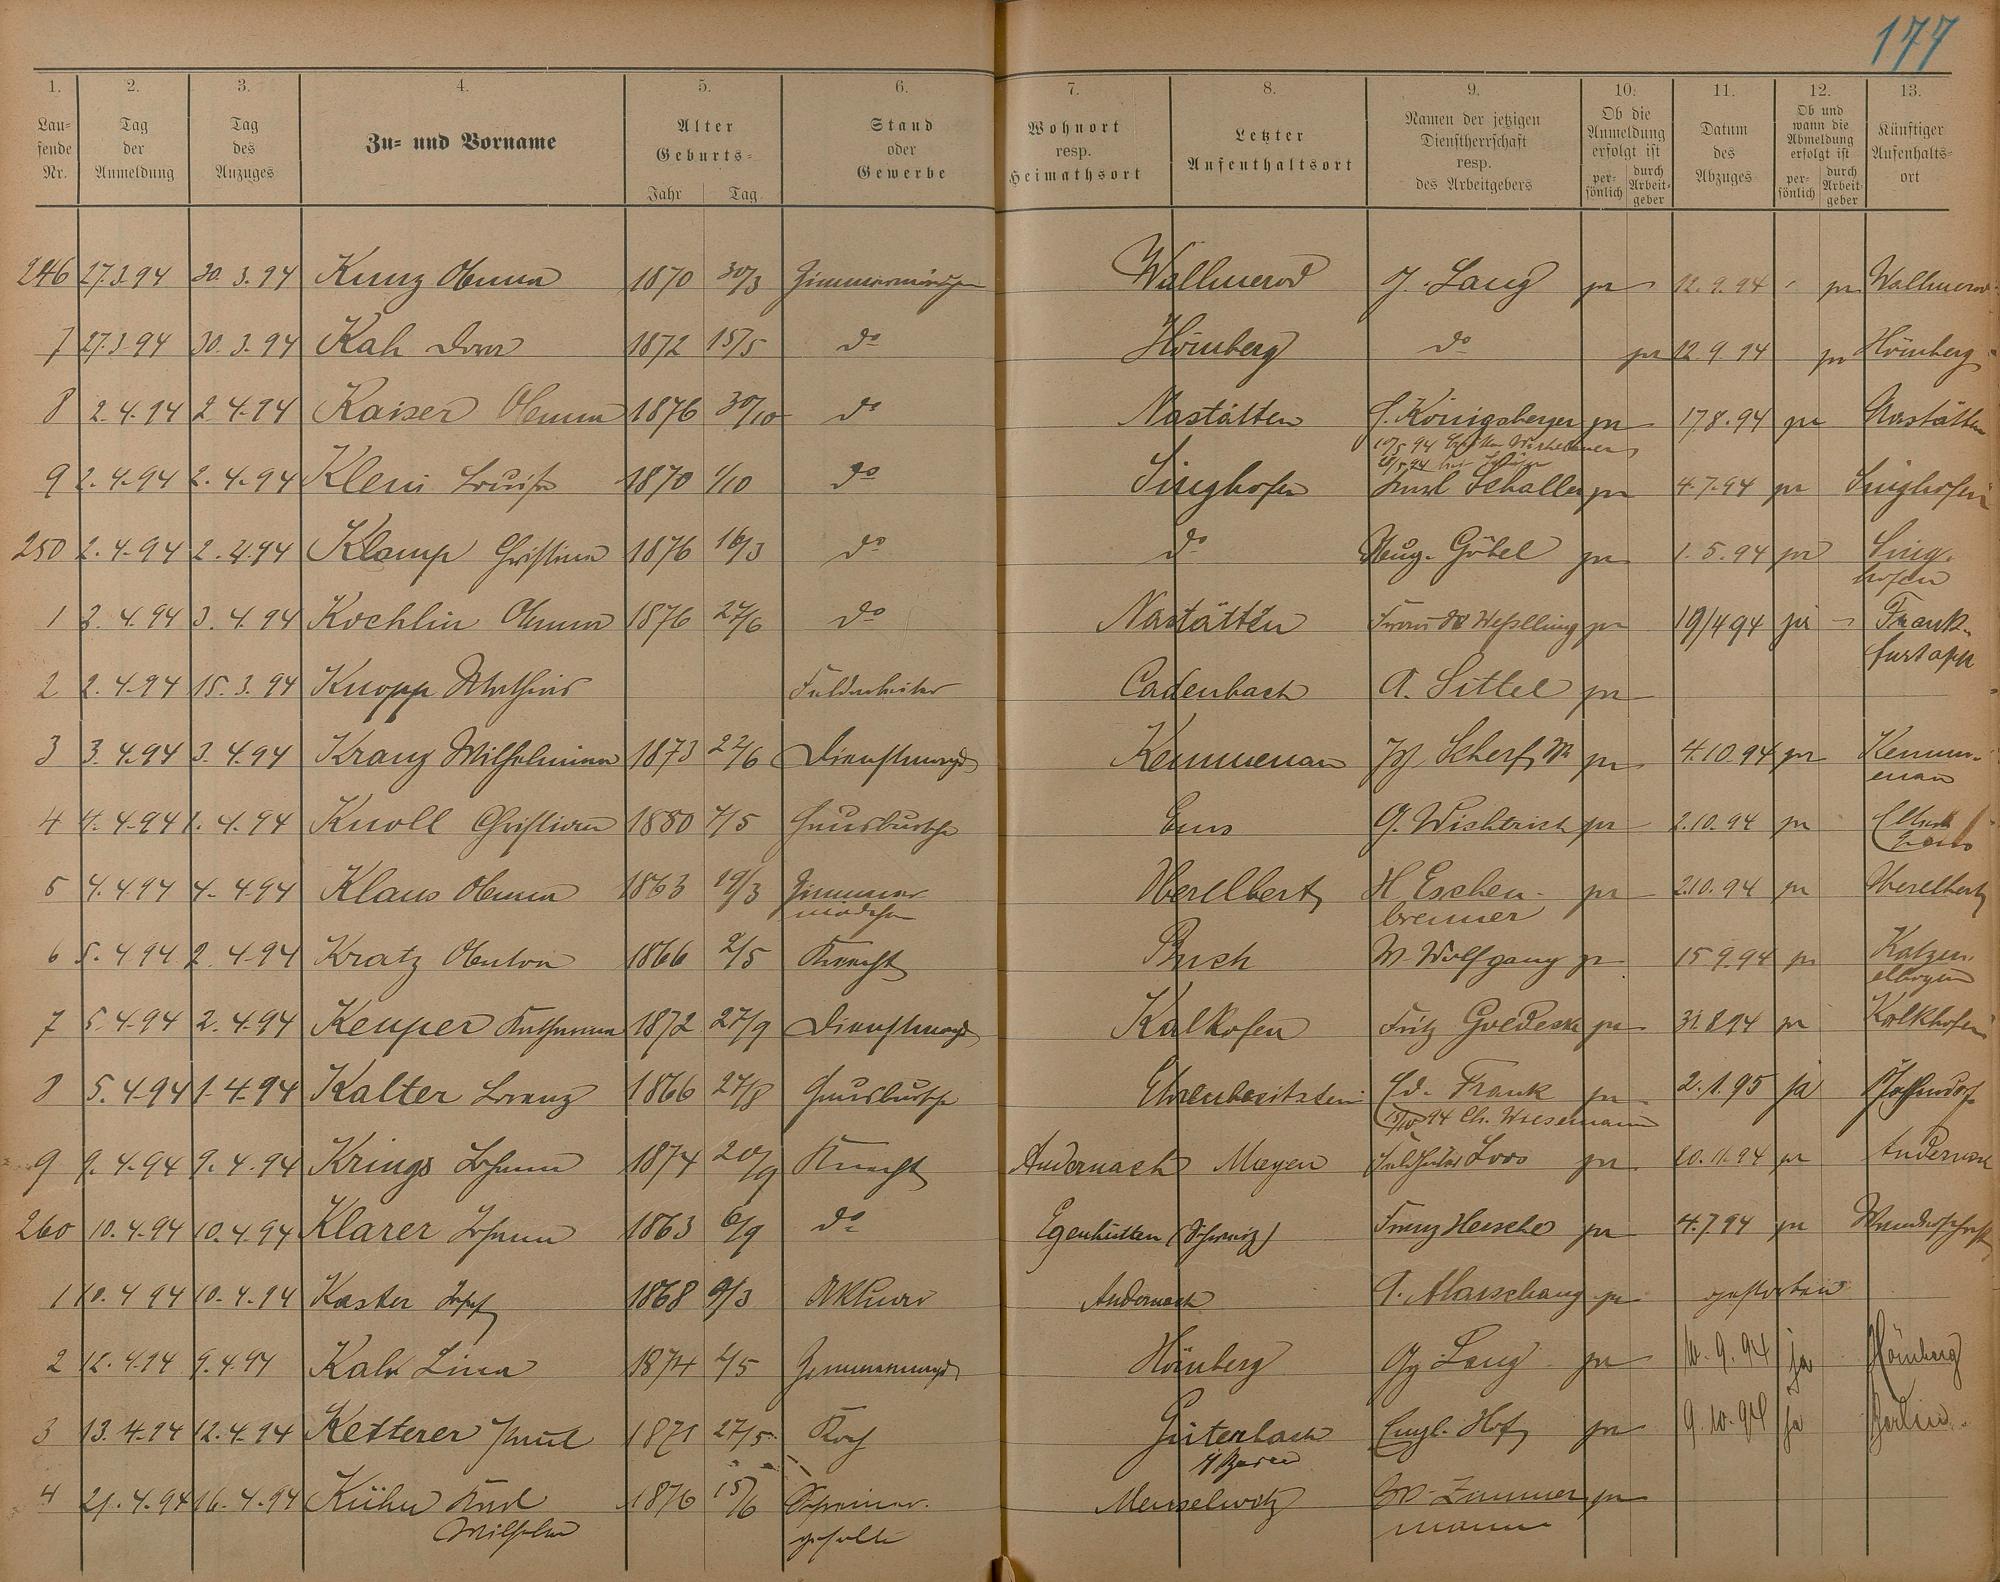 177
1. 2. 3. 4. 5. 6. 7. 8. 9. 10. 11. 12. 13.
Lau-
fende
Nr.
Tag
der
Anmeldung
Tag
des
Anzuges
Zu- und Vorname
Alter
Geburts-
Jahr Tag
Stand
oder
Gewerbe
Wohnort
resp.
Heimathsort
Letzter
Aufenthaltsort
Namen der jetzigen
Dienstherrschaft
resp.
des Arbeitgebers
Ob die
Anmeldung
erfolgt ist
per-
sönlich
durch
Arbeit-
geber
Datum
des
Abzuges
Ob und
wann die
Abmeldung
erfolgt ist
per-
sönlich
durch
Arbeit-
geber
Künftiger
Aufenthalts-
ort
246 27.3.94 30.3.94 Kunz Anna 1870 30/3 Zimmermädchen Wallmerod J. Lang pr 12.9.94 pr Wallmerod
7 27.3.94 30.3.94 Kah Dora 1872 15/5 do Hömberg do pr 12.9.94 pr Hömberg
8 2.4.94 2.4.94 Kaiser Anna 1876 30/10 do Nastätten Königsberger pr 17.8.94 pr Nastätten
9 2.4.94 2.4.94 Klein Louise 1870 1/10 do Singhofen Schaller pr 4.7.94 pr Singhofen
250 2.4.94 2.4.94 Klamp Christina 1876 16/3 do do Aug. Göbel pr 1.5.94 pr Sing-
hofen
1 3.4.94 3.4.94 Kochlin Anna 1876 27/6 do Nastätten Weßling pr 19/4 94 ja Frank-
furt
2 2.4.94 15.3.94 Knopp Mathias Cadenbach A. Sittel pr
3 3.4.94 3.4.94 Kranz Wilhelmina 1873 22/6 Dienstmagd Kemmenau Scherf pr 4.10.94 pr Kemm-
enau
4 4.4.94 1.4.94 Knoll Christian 1880 7/5 Hausbursche Ems G. Wichtrich pr 2.10.94 pr
5 4.4.94 4.4.94 Klaus Anna 1863 19/3 Zimmer
mädchen Oberelbert H Eschen-
brenner pr 2.10.94 pr Oberelbert
6 5.4.94 2.4.94 Kratz Anton 1866 2/5 Knecht W. Wolfgang pr 15.9.94 pr Katzen-
elbogen
7 5.4.94 2.4.94 Keuper Katharina 1872 27/9 Dienstmagd Kalkofen Fritz Goedecke pr 31.8.94 pr Kalkhofen
8 5.4.94 1.4.94 Kalter Lorenz 1866 27/8 Hausbursche Ehrenbreitstein Ed. Frank pr 2.1.95 ja Pfaffendorf
15/10 94 Ch. Wiesemann
9 9.4.94 9.4.94 Krings Johann 1874 20/9 Knecht Andernach Mayen Loos pr 10.11.94 pr Andernach
260 10.4.94 10.4.94 Klarer Johann 1863 6/9 do Egenhütten (Schweiz) Franz Heesche pr 4.7.94 pr Wanderschaft
1 10.4.94 10.4.94 Kaster Josef 1868 9/3 Andernach A. Marschang pr gestorben
2 12.4.94 9.4.94 Kah Lina 1874 2/5 Hömberg Gg Lang pr 10.9.94 ja Hömberg
3 13.4.94 12.4.94 Ketterer Paul 1871 27/5 Koch Gütenbach
i/ Baden Engl. Hof pr 9.10.94 ja Berlin
4 21.4.94 16.4.94 Kühn Karl
Wilhelm 1876 15/6 Schreiner-
geselle Meuselwitz W. Zimmer
mann pr